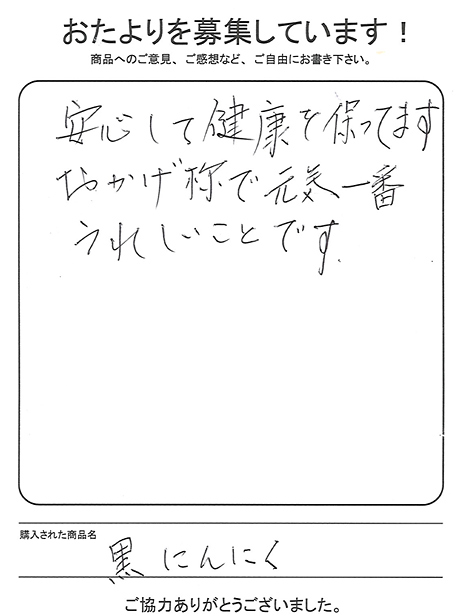 おたよりを募集しています！
商品へのご意見、ご感想など、ご自由にお書き下さい。
安心して健康を保ってます
おかげ様で元気一番
うれしいことです.
購入された商品名
黒にんにく
ご協力ありがとうございました。